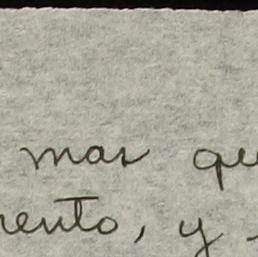 mas qu
ento, y